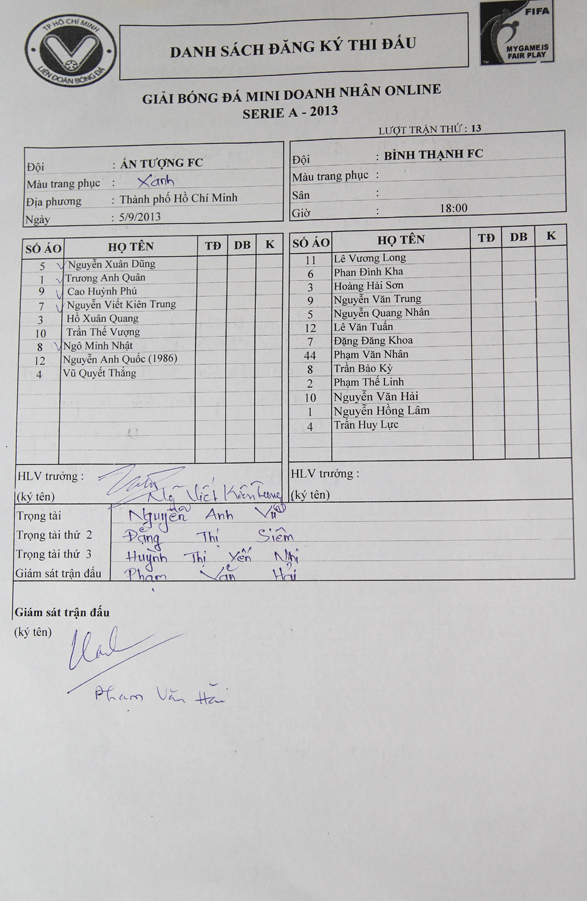 TP HỒ CHÍ MINH
LIÊN ĐOÀN BÓNG ĐÁ
DANH SÁCH ĐĂNG KÝ THI ĐẤU
FIFA
MY GAME IS
FAIR PLAY
GIẢI BÓNG ĐÁ MINI DOANH NHÂN ONLINE
SERIE A - 2013
LƯỢT TRẬN THỨ : 13
Đội : ẤN TƯỢNG FC
Màu trang phục : Xanh
Địa phương : Thành phố Hồ Chí Minh
Ngày : 5/9/2013
Đội : BÌNH THẠNH FC
Màu trang phục :
Sân :
Giờ : 18:00
SỐ ÁO HỌ TÊN TĐ DB K
5 Nguyễn Xuân Dũng
1 Trương Anh Quân
9 Cao Huỳnh Phú
7 Nguyễn Viết Kiên Trung
3 Hồ Xuân Quang
10 Trần Thế Vượng
8 Ngô Minh Nhật
12 Nguyễn Anh Quốc (1986)
4 Vũ Quyết Thắng
SỐ ÁO HỌ TÊN TĐ DB K
11 Lê Vương Long
6 Phan Đình Kha
3 Hoàng Hải Sơn
9 Nguyễn Văn Trung
5 Nguyễn Quang Nhân
12 Lê Văn Tuấn
7 Đặng Đăng Khoa
44 Phạm Văn Nhân
8 Trần Bảo Kỳ
2 Phạm Thế Linh
10 Nguyễn Văn Hải
1 Nguyễn Hồng Lâm
4 Trần Huy Lực
HLV trưởng :
(ký tên) Ng Viết Kiên Trung
HLV trưởng :
(ký tên)
Trọng tài Nguyễn Anh Vũ
Trọng tài thứ 2 Đặng Thị Siêm
Trọng tài thứ 3 Huỳnh Thị Yến Nhi
Giám sát trận đấu Phạm Văn Hải
Giám sát trận đấu
(ký tên)
Phạm Văn Hải